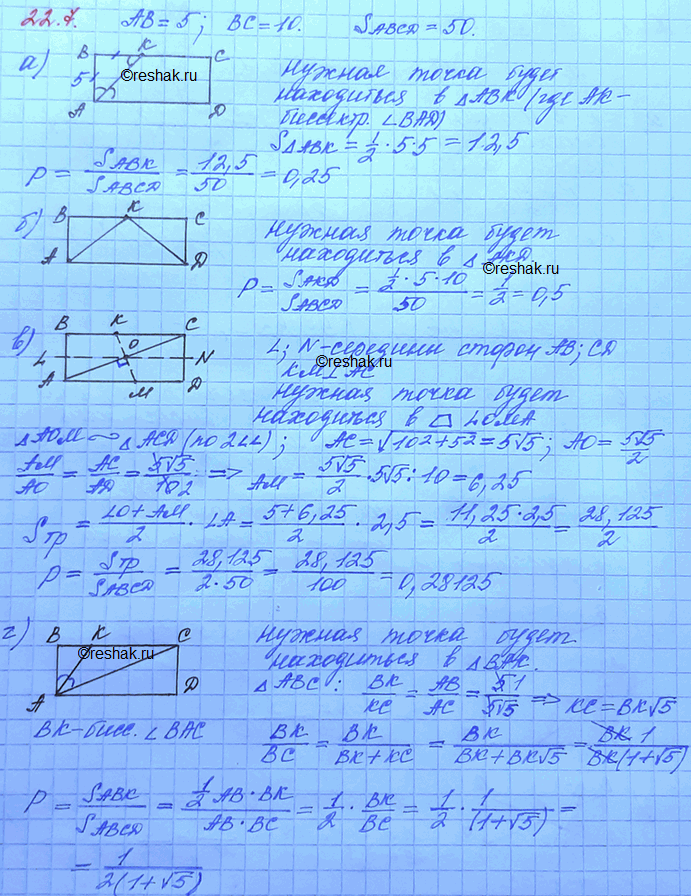 22.7. AB = 5; BC = 10. SABCD = 50.
а) B K C
5
A D
©reshak.ru
нужная точка будет
находиться в △ABK (где AK-
биссектр. ∠BAD)
S△ABK = 1/2 · 5 · 5 = 12,5
P = SABK/SABCD = 12,5/50 = 0,25
©reshak.ru
б) B K C
A D
нужная точка будет
находиться в △AKD.
©reshak.ru
P = SAKD/SABCD = (1/2 · 5 · 10)/50 = 1/2 = 0,5
в) B K C
L O N
A M D
L; N-середины сторон AB; CD
©reshak.ru
KM⊥AC
нужная точка будет
находиться в ⏢ LOMA
△AOM ∼ △ACD (по 2∠∠); AC = √102+52 = 5√5; AO = 5√5/2
AM/AO = AC/AD = 5√5/10 2 => AM = 5√5/2 · 5√5 : 10 = 6,25
Sтр = (LO + AM)/2 · LA = (5+6,25)/2 · 2,5 = (11,25 · 2,5)/2 = 28,125/2
P = Sтр/SABCD = 28,125/(2 · 50) = 28,125/100 = 0,28125
г) B K C
©reshak.ru
A D
нужная точка будет
находиться в △BAK.
△ABC: BK/KC = AB/AC = 5 1/5√5 => KC = BK√5
BK-бисс. ∠BAC
BK/BC = BK/(BK + KC) = BK/(BK + BK√5) = BK 1/BK(1+√5)
P = SABK/SABCD = (1/2 AB · BK)/(AB · BC) = 1/2 · BK/BC = 1/2 · 1/(1+√5) =
= 1/2(1+√5)